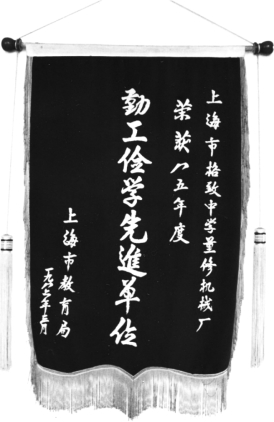 上海市格致中学量修机械厂
荣获八五年度
勤工俭学先進单位
上海市教育局
一九八六年三月